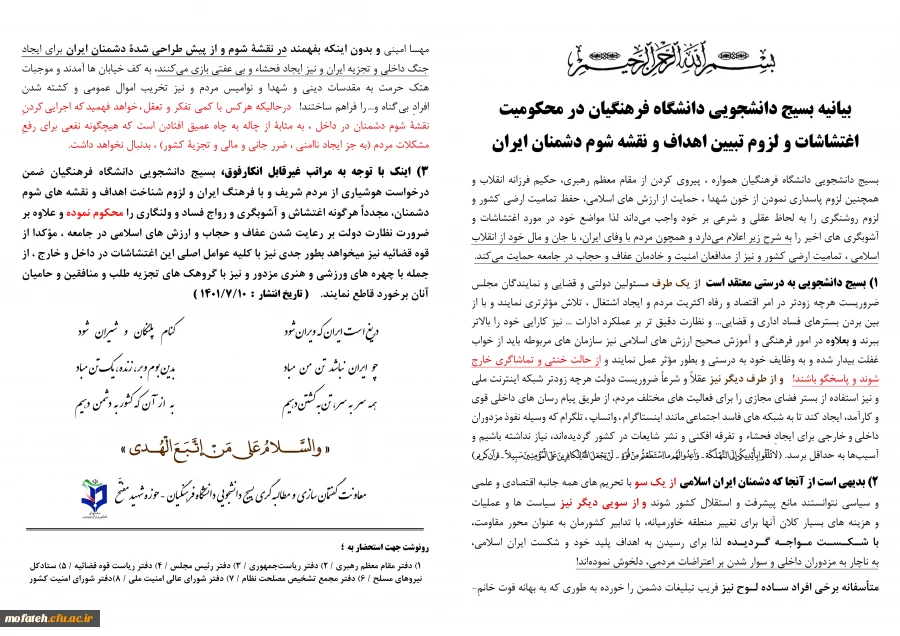 بسم الله الرحمن الرحیم
بیانیه بسیج دانشجویی دانشگاه فرهنگیان در محکومیت
اغتشاشات و لزوم تبیین اهداف و نقشه شوم دشمنان ایران
بسیج دانشجویی دانشگاه فرهنگیان همواره ، پیروی کردن از مقام معظم رهبری، حکیم فرزانه انقلاب و
همچنین لزوم پاسداری نمودن از خون شهدا ، حمایت از ارزش های اسلامی، حفظ تمامیت ارضی کشور و
لزوم روشنگری را به لحاظ عقلی و شرعی بر خود واجب می‌داند لذا مواضع خود در مورد اغتشاشات و
آشوبگری های اخیر را به شرح زیر اعلام می‌دارد و همچون مردم با وفای ایران، با جان و مال خود از انقلاب
اسلامی ، تمامیت ارضی کشور و نیز از مدافعان امنیت و خادمان عفاف و حجاب در جامعه حمایت می‌کند.
۱) بسیج دانشجویی به درستی معتقد است از یک طرف مسئولین دولتی و قضایی و نمایندگان مجلس
ضروریست هرچه زودتر در امر اقتصاد و رفاه اکثریت مردم و ایجاد اشتغال ، تلاش مؤثرتری نمایند و با از
بین بردن بسترهای فساد اداری و قضایی... و نظارت دقیق تر بر عملکرد ادارات ... نیز کارایی خود را بالاتر
ببرند و بعلاوه در امور فرهنگی و آموزش صحیح ارزش های اسلامی نیز سازمان های مربوطه باید از خواب
غفلت بیدار شده و به وظایف خود به درستی و بطور مؤثر عمل نمایند و از حالت خنثی و تماشاگری خارج
شوند و پاسخگو باشند! و از طرف دیگر نیز عقلاً و شرعاً ضروریست دولت هرچه زودتر شبکه اینترنت ملی
و نیز استفاده از بستر فضای مجازی را برای فعالیت های مختلف مردم، از طریق پیام رسان های داخلی قوی
و کارآمد، ایجاد کند تا به شبکه های فاسد اجتماعی مانند اینستاگرام ، واتساپ ، تلگرام که وسیله نفوذ مزدوران
داخلی و خارجی برای ایجاد فحشاء و تفرقه افکنی و نشر شایعات در کشور گردیده‌اند، نیاز نداشته باشیم و
آسیب‌ها به حداقل برسد. (لا تُلْقُوا بِأَیْدِیکُمْ إِلَى التَّهْلُکَةِ - وَأَعِدُّوا لَهُم مَّا اسْتَطَعْتُم مِّن قُوَّةٍ - لَن یَجْعَلَ اللَّهُ لِلْکَافِرِینَ عَلَى الْمُؤْمِنِینَ سَبِیلاً - قرآن کریم)
۲) بدیهی است از آنجا که دشمنان ایران اسلامی از یک سو با تحریم های همه جانبه اقتصادی و علمی
و سیاسی نتوانستند مانع پیشرفت و استقلال کشور شوند و از سویی دیگر نیز سیاست ها و عملیات
و هزینه های بسیار کلان آنها برای تغییر منطقه خاورمیانه، با تدابیر کشورمان به عنوان محور مقاومت،
با شکست مواجه گردیده لذا برای رسیدن به اهداف پلید خود و شکست ایران اسلامی،
به ناچار به مزدوران داخلی و سوار شدن بر اعتراضات مردمی، دلخوش نموده‌اند!
متأسفانه برخی افراد ساده لوح نیز فریب تبلیغات دشمن را خورده به طوری که به بهانه فوت خانم-
مهسا امینی و بدون اینکه بفهمند در نقشهٔ شوم و از پیش طراحی شدهٔ دشمنان ایران برای ایجاد
جنگ داخلی و تجزیه ایران و نیز ایجاد فحشاء و بی عفتی بازی می‌کنند، به کف خیابان ها آمدند و موجبات
هتک حرمت به مقدسات دینی و شهدا و نوامیس مردم و نیز تخریب اموال عمومی و کشته شدن
افراد بی‌گناه و...را فراهم ساختند! درحالیکه هرکس با کمی تفکر و تعقل ، خواهد فهمید که اجرایی کردنِ
نقشهٔ شوم دشمنان در داخل ، به مثابهٔ از چاله به چاه عمیق افتادن است که هیچگونه نفعی برای رفع
مشکلات مردم (به جز ایجاد ناامنی ، ضرر جانی و مالی و تجزیهٔ کشور) ، بدنبال نخواهد داشت.
۳) اینک با توجه به مراتب غیرقابل انکارفوق، بسیج دانشجویی دانشگاه فرهنگیان ضمن
درخواست هوشیاری از مردم شریف و با فرهنگ ایران و لزوم شناخت اهداف و نقشه های شوم
دشمنان، مجدداً هرگونه اغتشاش و آشوبگری و رواج فساد و ولنگاری را محکوم نموده و علاوه بر
ضرورت نظارت دولت بر رعایت شدن عفاف و حجاب و ارزش های اسلامی در جامعه ، مؤکدا از
قوه قضائیه نیز میخواهد بطور جدی نیز با کلیه عوامل اصلی این اغتشاشات در داخل و خارج ، از
جمله با چهره های ورزشی و هنری مزدور و نیز با گروهک های تجزیه طلب و منافقین و حامیان
آنان برخورد قاطع نمایند. ( تاریخ انتشار : ۱۴۰۱/۷/۱۰ )
دریغ است ایران که ویران شود کنام پلنگان و شیران شود
چو ایران نباشد تن من مباد بدین بوم و بر، زنده، یک تن مباد
همه سر به سر، تن به کشتن دهیم به از آن که کشور به دشمن دهیم
« والسَّلامُ عَلی مَنِ اتَّبَعَ الْهُدی »
معاونت گفتمان سازی و مطالبه گری بسیج دانشجویی دانشگاه فرهنگیان - حوزه شهید مفتح
رونوشت جهت استحضار به ؛
۱) دفتر مقام معظم رهبری / ۲) دفتر ریاست‌جمهوری / ۳) دفتر رئیس مجلس / ۴) دفتر ریاست قوه قضائیه / ۵) ستادکل
نیروهای مسلح / ۶) دفتر مجمع تشخیص مصلحت نظام / ۷) دفتر شورای عالی امنیت ملی / ۸)دفتر شورای امنیت کشور
mofateh.cfu.ac.ir